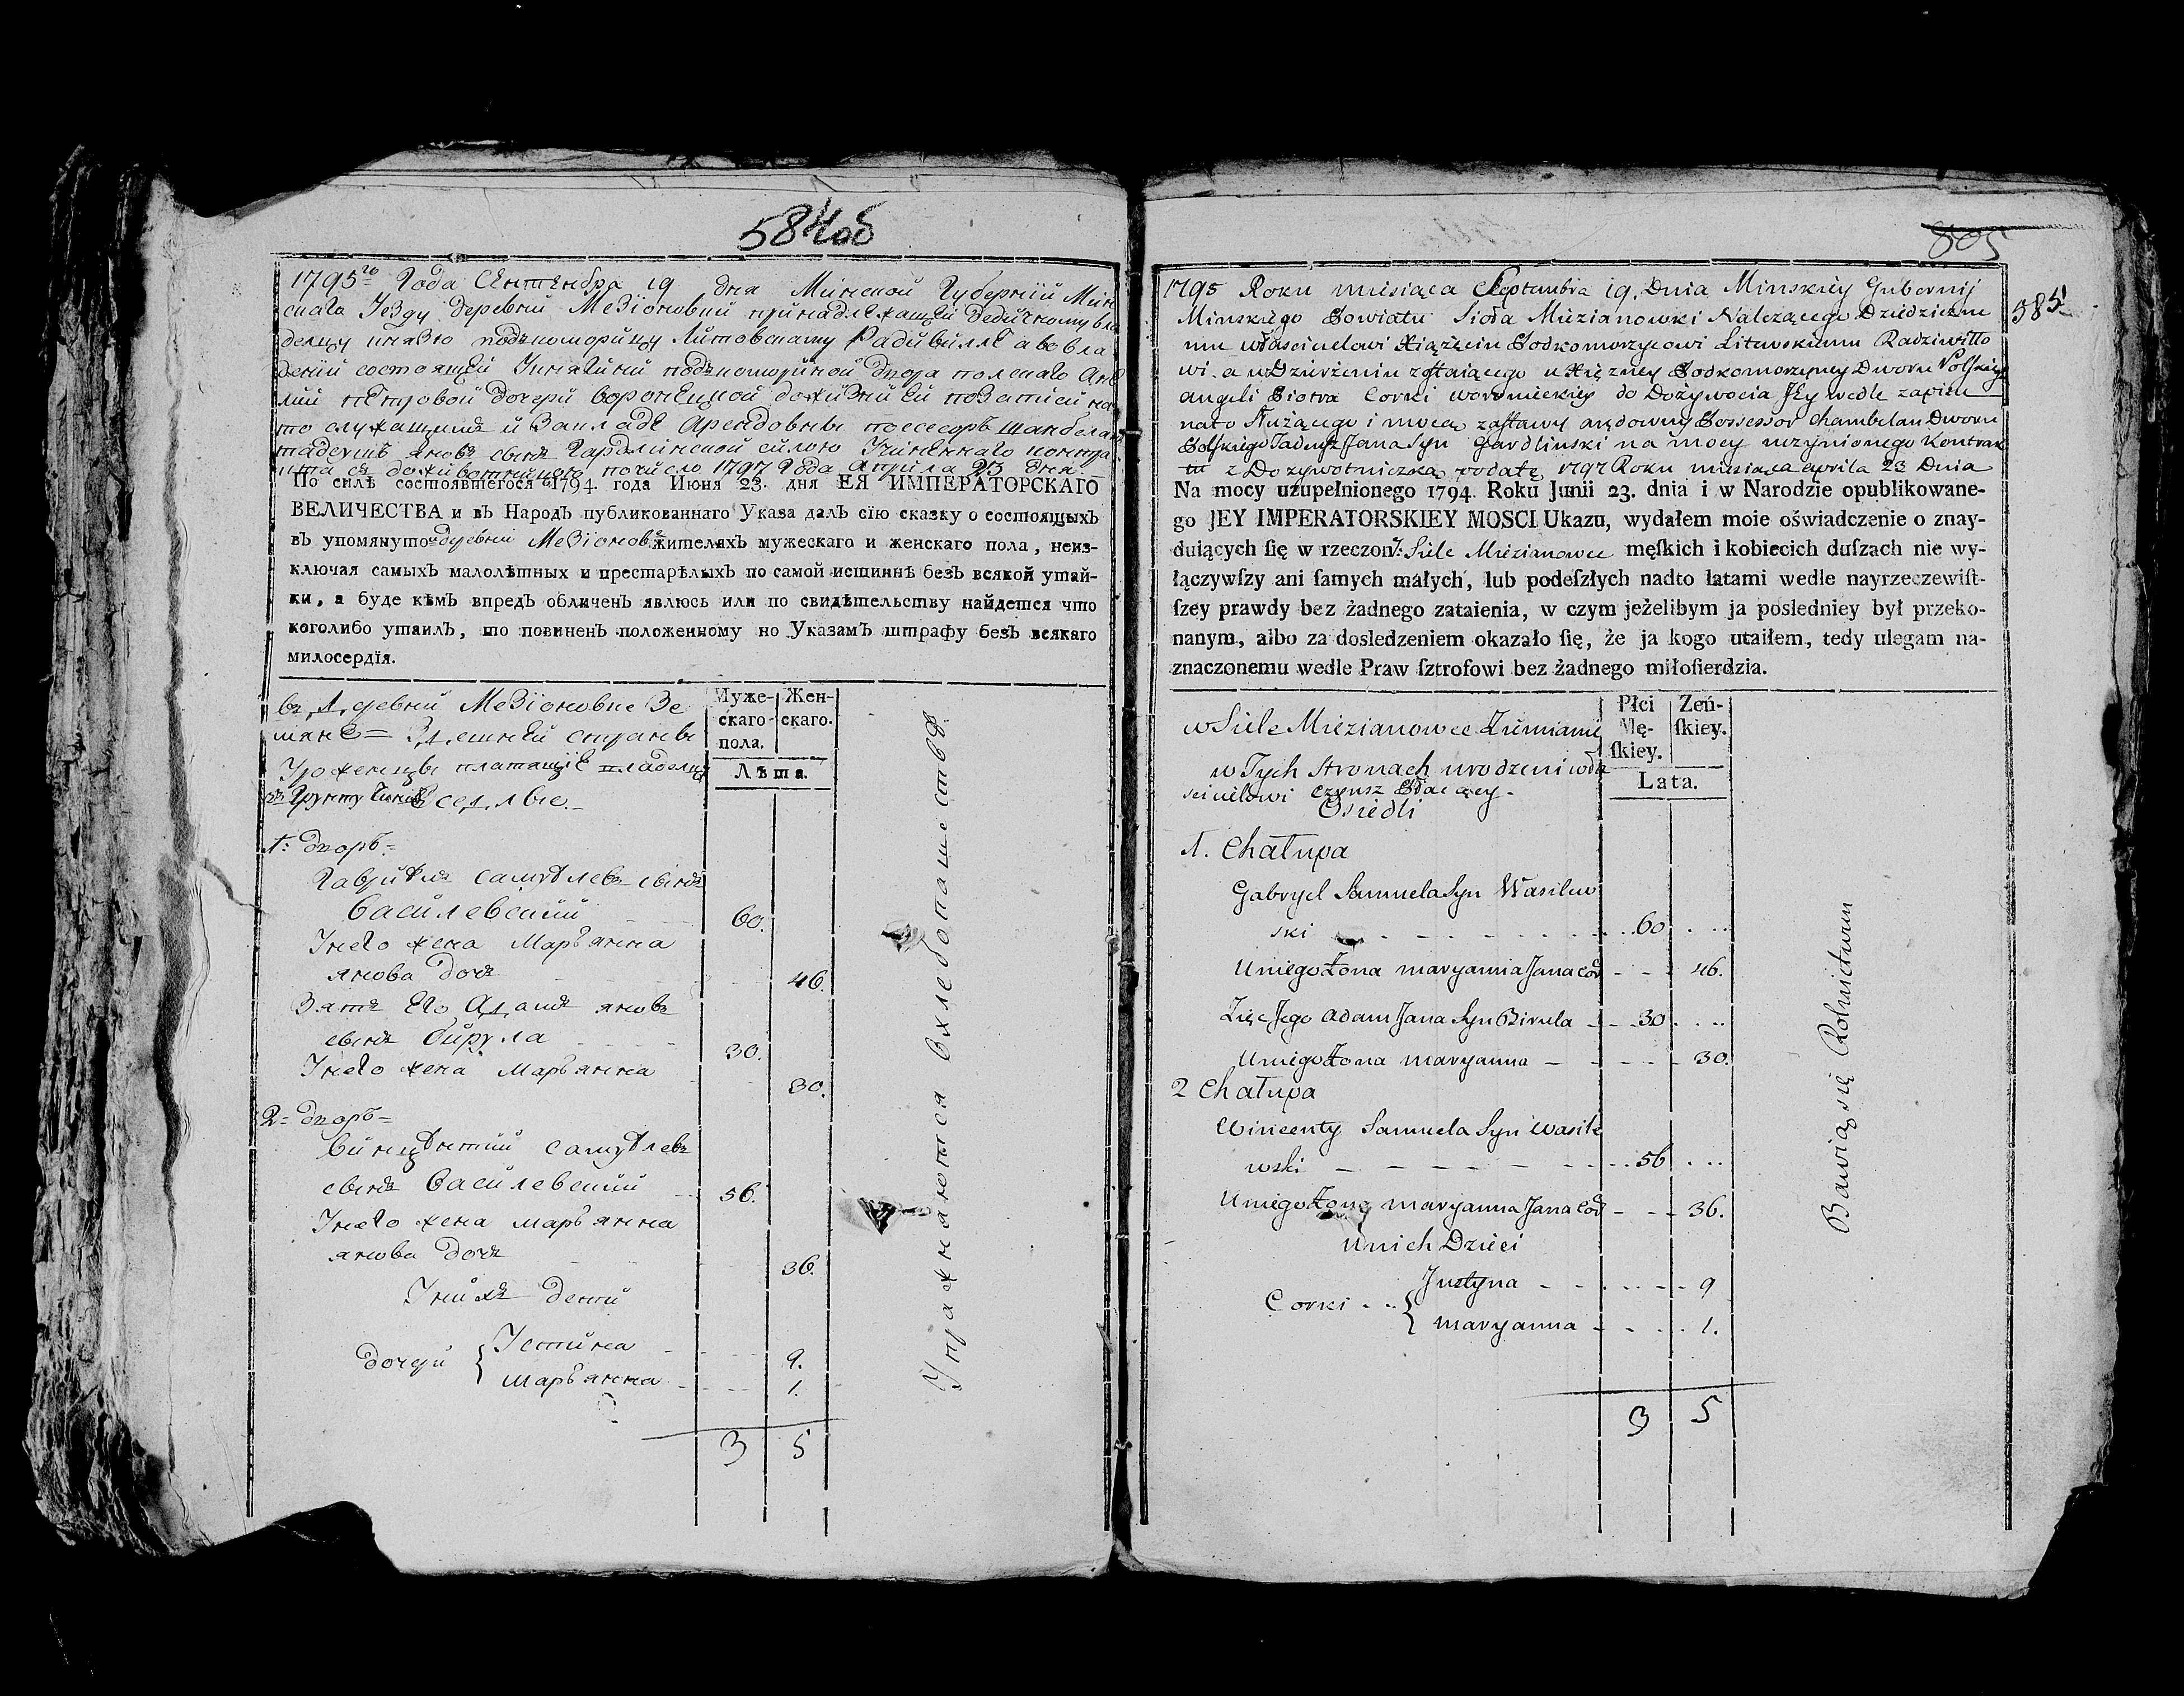 584об
1795го Года Сентебра 19 дня Минской Губернии Мин
скаго Уезду деревни Мезїоновки принадлежащей дедичному вла
делцу князю подкоморицу Литовскому Радивилле а во вла
дении состоящей Княгини подкомориной двора полскаго Анѐ
лии петровой дочери воронецкой дожизни ей по записи на
то служащим и Закладе Арендовны посесоръ шанбелан
тадеушъ яновъ сынъ Гардлинской силою Учиненнаго контра
кта съ доживотницою по число 1797 Года Априла 23 дня.
По силѣ состоявшегося 1794 года Июня 23. дня ЕЯ ИМПЕРАТОРСКАГО
ВЕЛИЧЕСТВА и въ Народъ публикованнаго Указа далъ сїю сказку о состоящыхъ
въ упомянуто деревни Мезїоновке жителяхъ мужескаго и женскаго пола, неиз-
ключая самыхъ малолѣтных и престарѣлыхъ по самой истиннѣ безъ всякой утай-
ки, а буде кѣмъ впредъ обличенъ явлюсь или по свидѣтельству найдется что
коголибо утаилъ, то повиненъ положенному по Указамъ штрафу безъ всякаго
милосердїя.
въ деревни Мезїоновке Зе
мяне = Здешней стране
Уроженцы платащіе
Грунту чинш оседлые.
Муже-
скаго
пола.
Жен-
скаго.
Лѣта.
1: дворъ =
Гаврила самуелевъ сынъ
Василевский 60.
У него жена Марьянна
янова дочь 46.
Зять Его Адамъ яновъ
сынъ Бирула 30.
У него жена Марьянна 30.
2 = дворъ =
Винцентий самуелевъ
сынъ Василевский 56.
У него жена марьянна
янова дочь 36.
У нихъ дети
дочери { Устина 9.
Марьянна 1.
3 5
Упражняются в хлебопашестве
805
585
1795 Roku miesiąca Septembra 19. Dnia Minskiey Gubernij
Minskiego Powiatu Sioła Miezianowki Nalezącego Dziedziczne
mu włascicielowi Xiążęciu Podkomorzycowi Litewskiemu Radziwiłło
wi. a w Dzierżeniu zostaiącego u Xięzney Podkomorzyney Dworu Polskiego
angeli Piotra Corki woronieckiey do Dożywocia Jey wedle zapisu
na to służącego i mocą zastawy aręndowny Possessor Chambelan Dworu
Polskiego Tadeusz Jana Syn Gardlinski na mocy uczynionego Kontrak
tu z Dozywotniczką podatę 1797 Roku miesiąca aprila 23 Dnia
Na mocy uzupełnionego 1794 Roku Junii 23. dnia i w Narodzie opublikowane-
go JEY IMPERATORSKIEY MOSCI Ukazu, wydałem moie oświadczenie o znay-
duiących ſię w rzeczon: Siele Miezianowce męſkich i kobiecich duſzach nie wy-
łączywſzy ani ſamych małych, lub podeſzłych nadto latami wedle nayrzeczewiſt-
ſzey prawdy bez żadnego zataienia, w czym jeżelibym ja posledniey był przeko-
nanym, albo za dosledzeniem okazało ſię, że ja kogo utaiłem, tedy ulegam na-
znaczonemu wedle Praw ſztrofowi bez żadnego miłoſierdzia.
w Siele Miezianowce Ziemianie
w Tych Stronach urodzeni wła
scicielowi Czynsz Płacący -
Osiedli
Płci
Mę-
ſkiey.
Zeń-
ſkiey.
Lata.
1. Chałupa
Gabryel Samuela Syn Wasilew
ski 60
U niego Żona maryanna Jana Cor 46.
Zięć Jego Adam Jana Syn Birula 30
U niego Żona maryanna 30.
2 Chałupa
Wincenty Samuela Syn Wasile
wski 56
U niego Żona maryanna Jana Cor 36.
U nich Dzieci
Corki { Justyna 9
maryanna 1.
3 5
Bawią się Rolnictwem